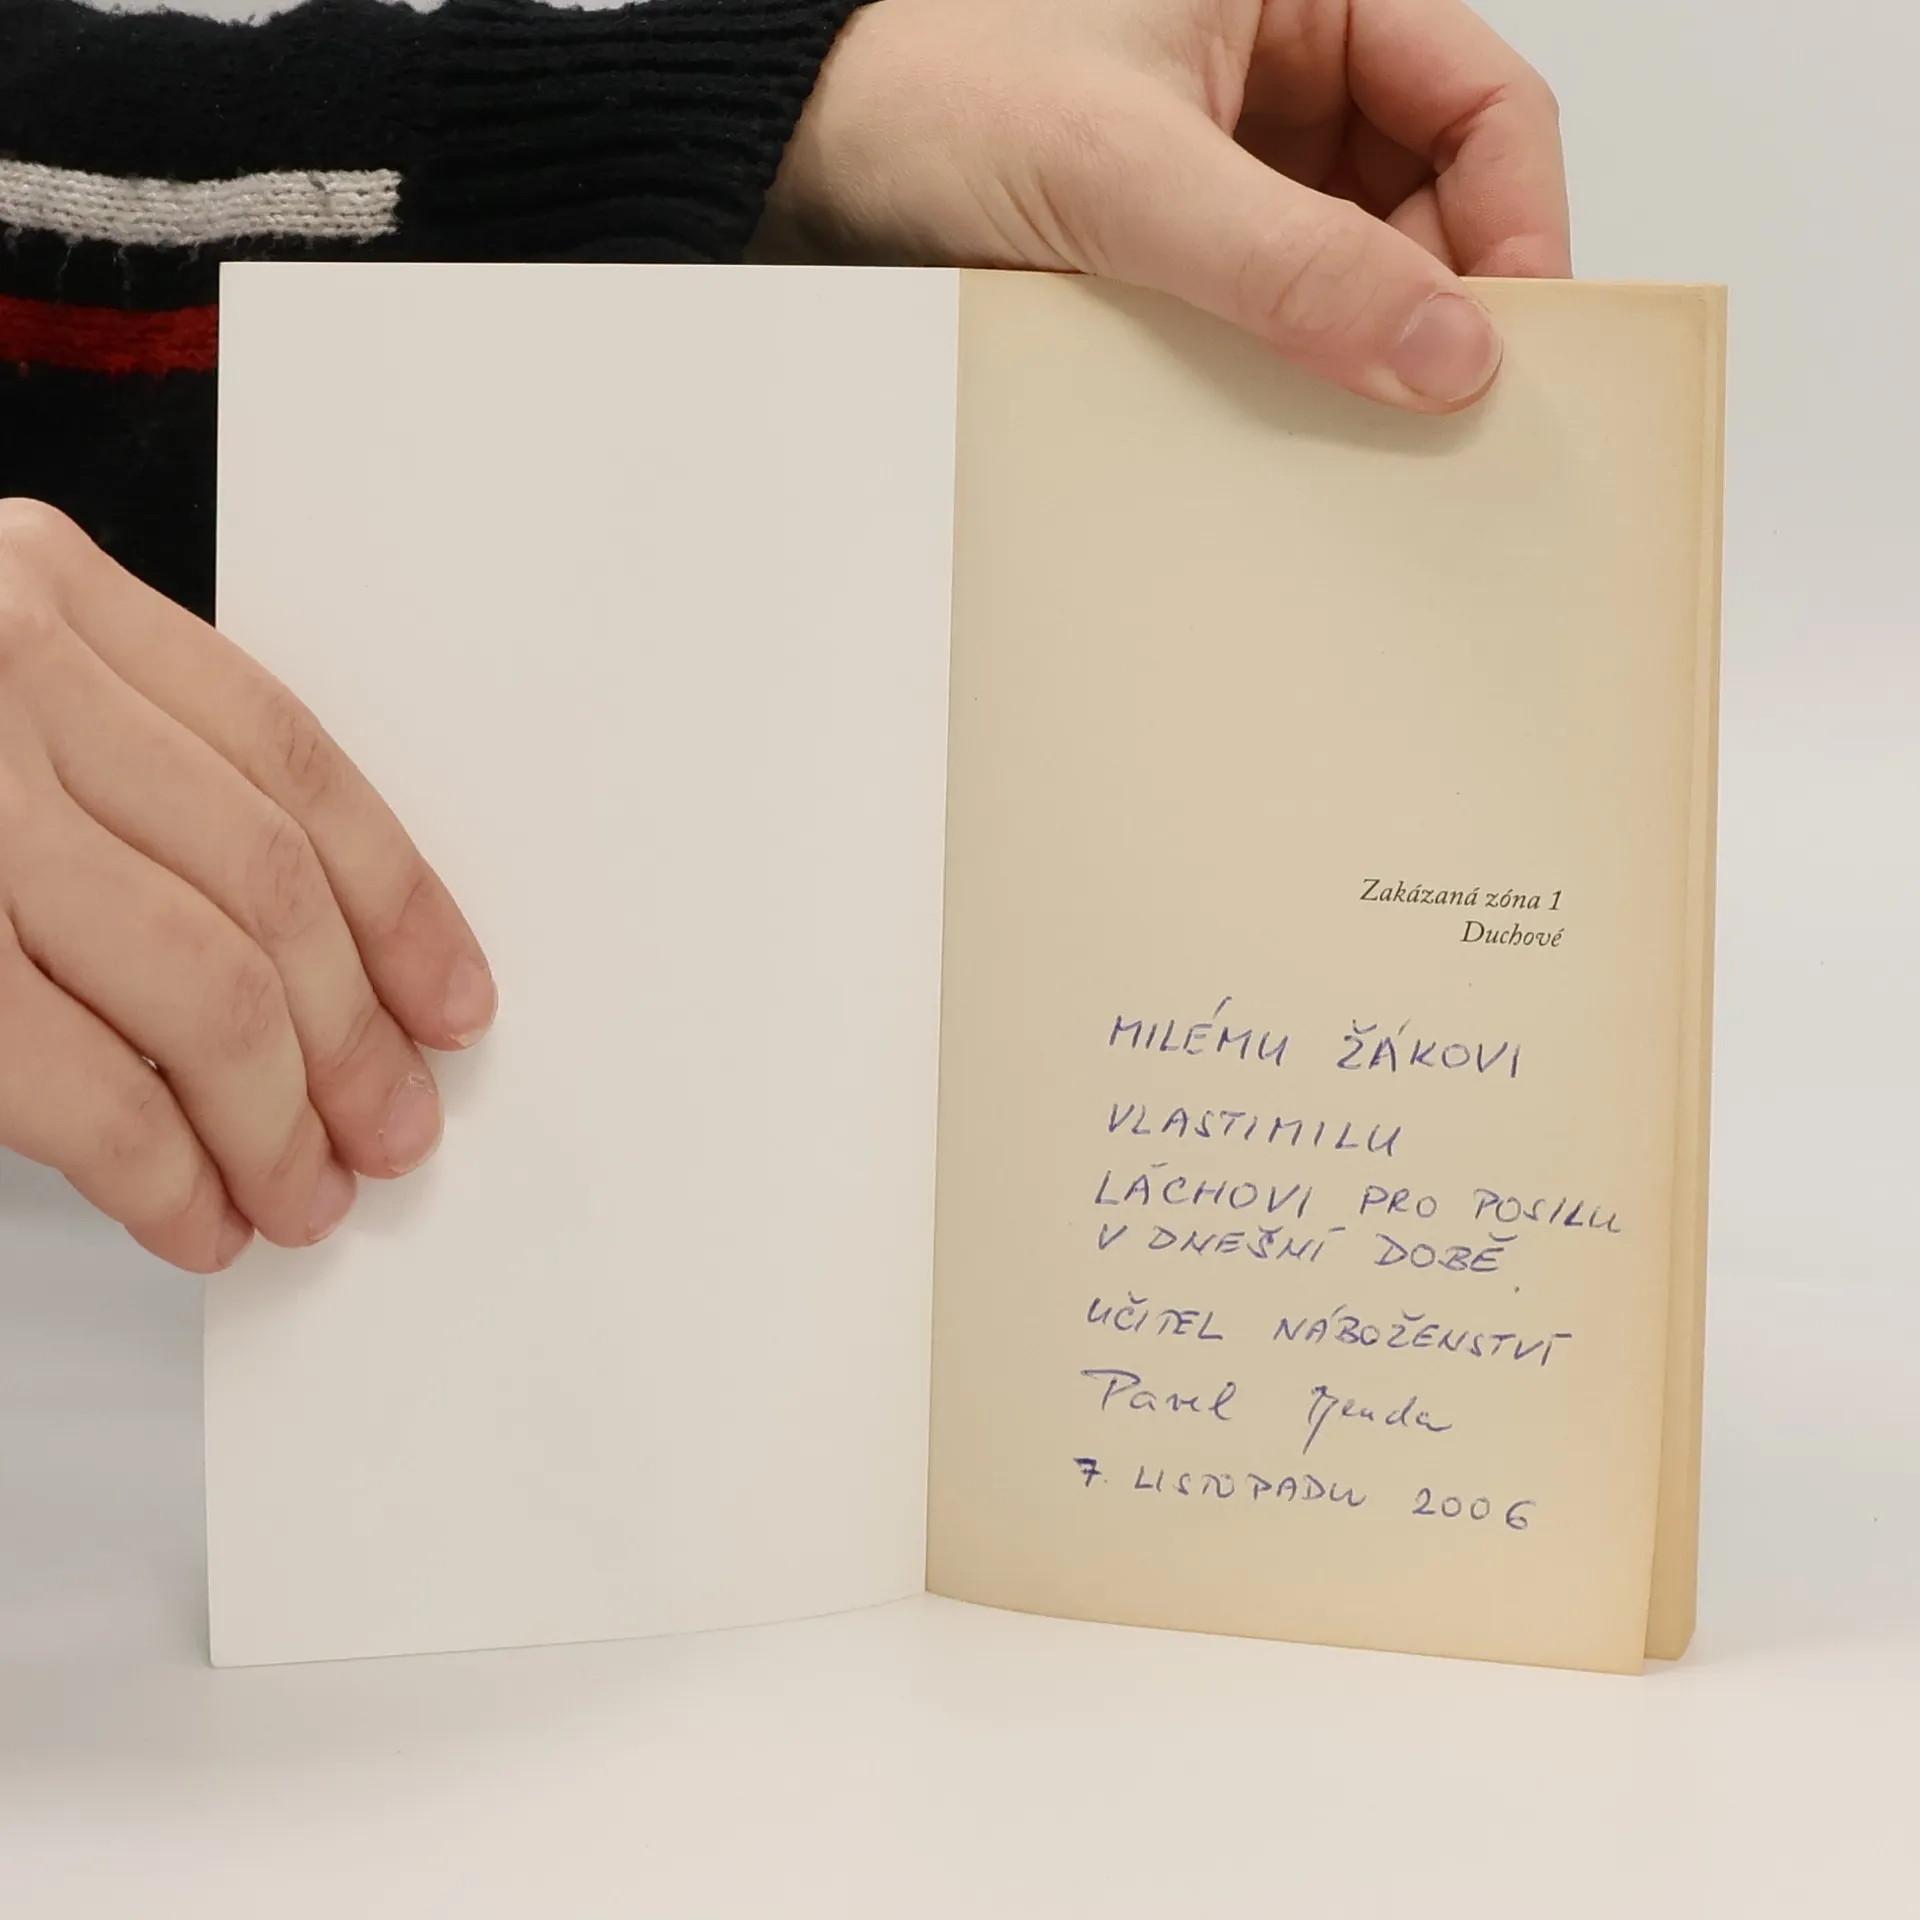 Zakázaná zóna 1
Duchové
MILÉMU ŽÁKOVI
VLASTIMILU
LÁCHOVI PRO POSILU
V DNEŠNÍ DOBĚ.
UČITEL NÁBOŽENSTVÍ
Pavel
7. LISTOPADU 2006